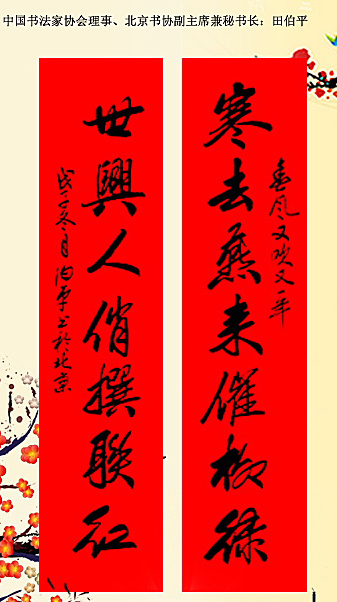 中国书法家协会理事、北京书协副主席兼秘书长：田伯平
寒去燕来催柳绿
春风又吹又一年
世興人俏撰聯红
戊子冬月伯平书於北京